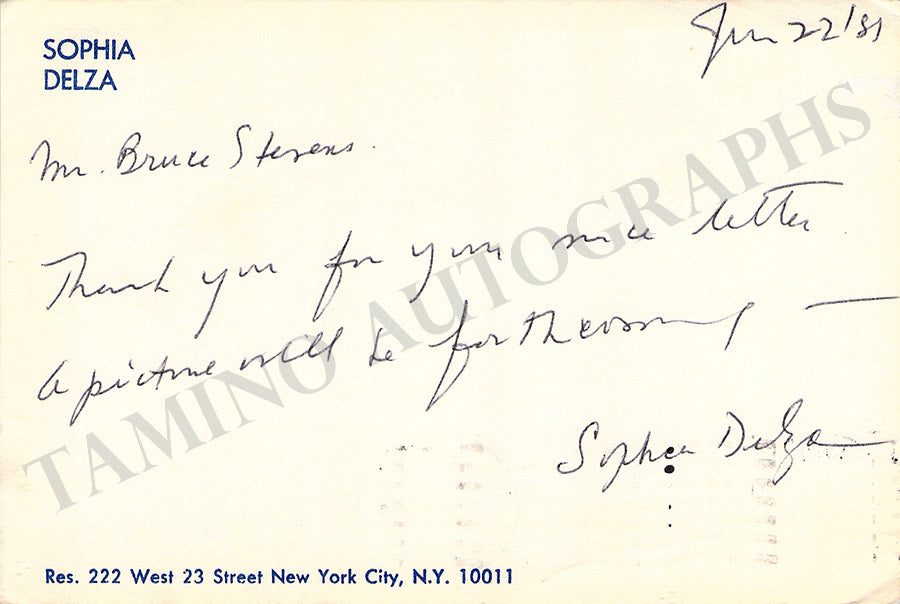 SOPHIA
DELZA
22 '81
Mr. Bruce Stevens.
Thank you for your nice letter
A picture will be forthcoming —
Sophia Delza
TAMINO AUTOGRAPHS
Res. 222 West 23 Street New York City, N.Y. 10011